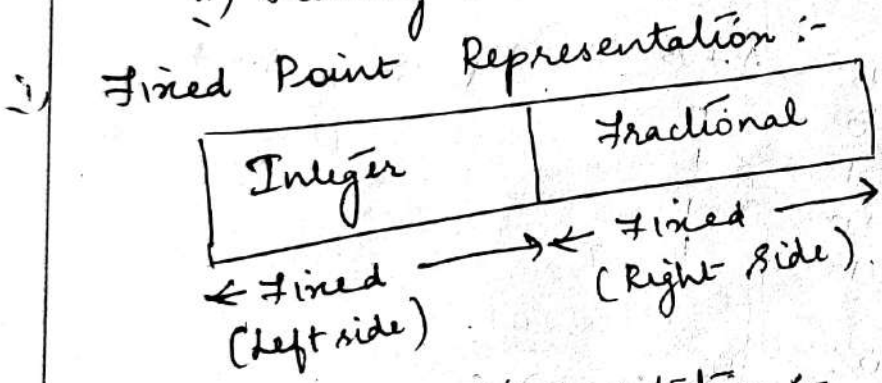 i) Fixed Point Representation :-
Integer Fractional
← Fixed → ← Fixed →
(Left side) (Right side).